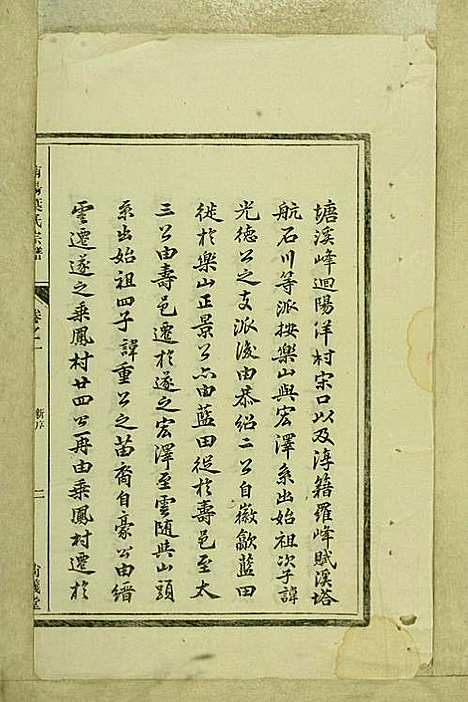 塘溪峰迴陽洋村宋口以及淳籍羅峰賦溪塔
航石川等派按樂山與宏澤系出始祖次子諱
光德公之支派後由恭紹二公自徽歙藍田
徙於樂山正景公亦由藍田從於壽邑至太
三公由壽邑遷於遂之宏澤至雲隨共山頭
系出始祖四子諱重公之苗裔自豪公由縉
雲遷遂之乘鳳村廿四公再由乘鳳村遷於
南陽葉氏宗譜
卷之一
新序
二
尚義堂